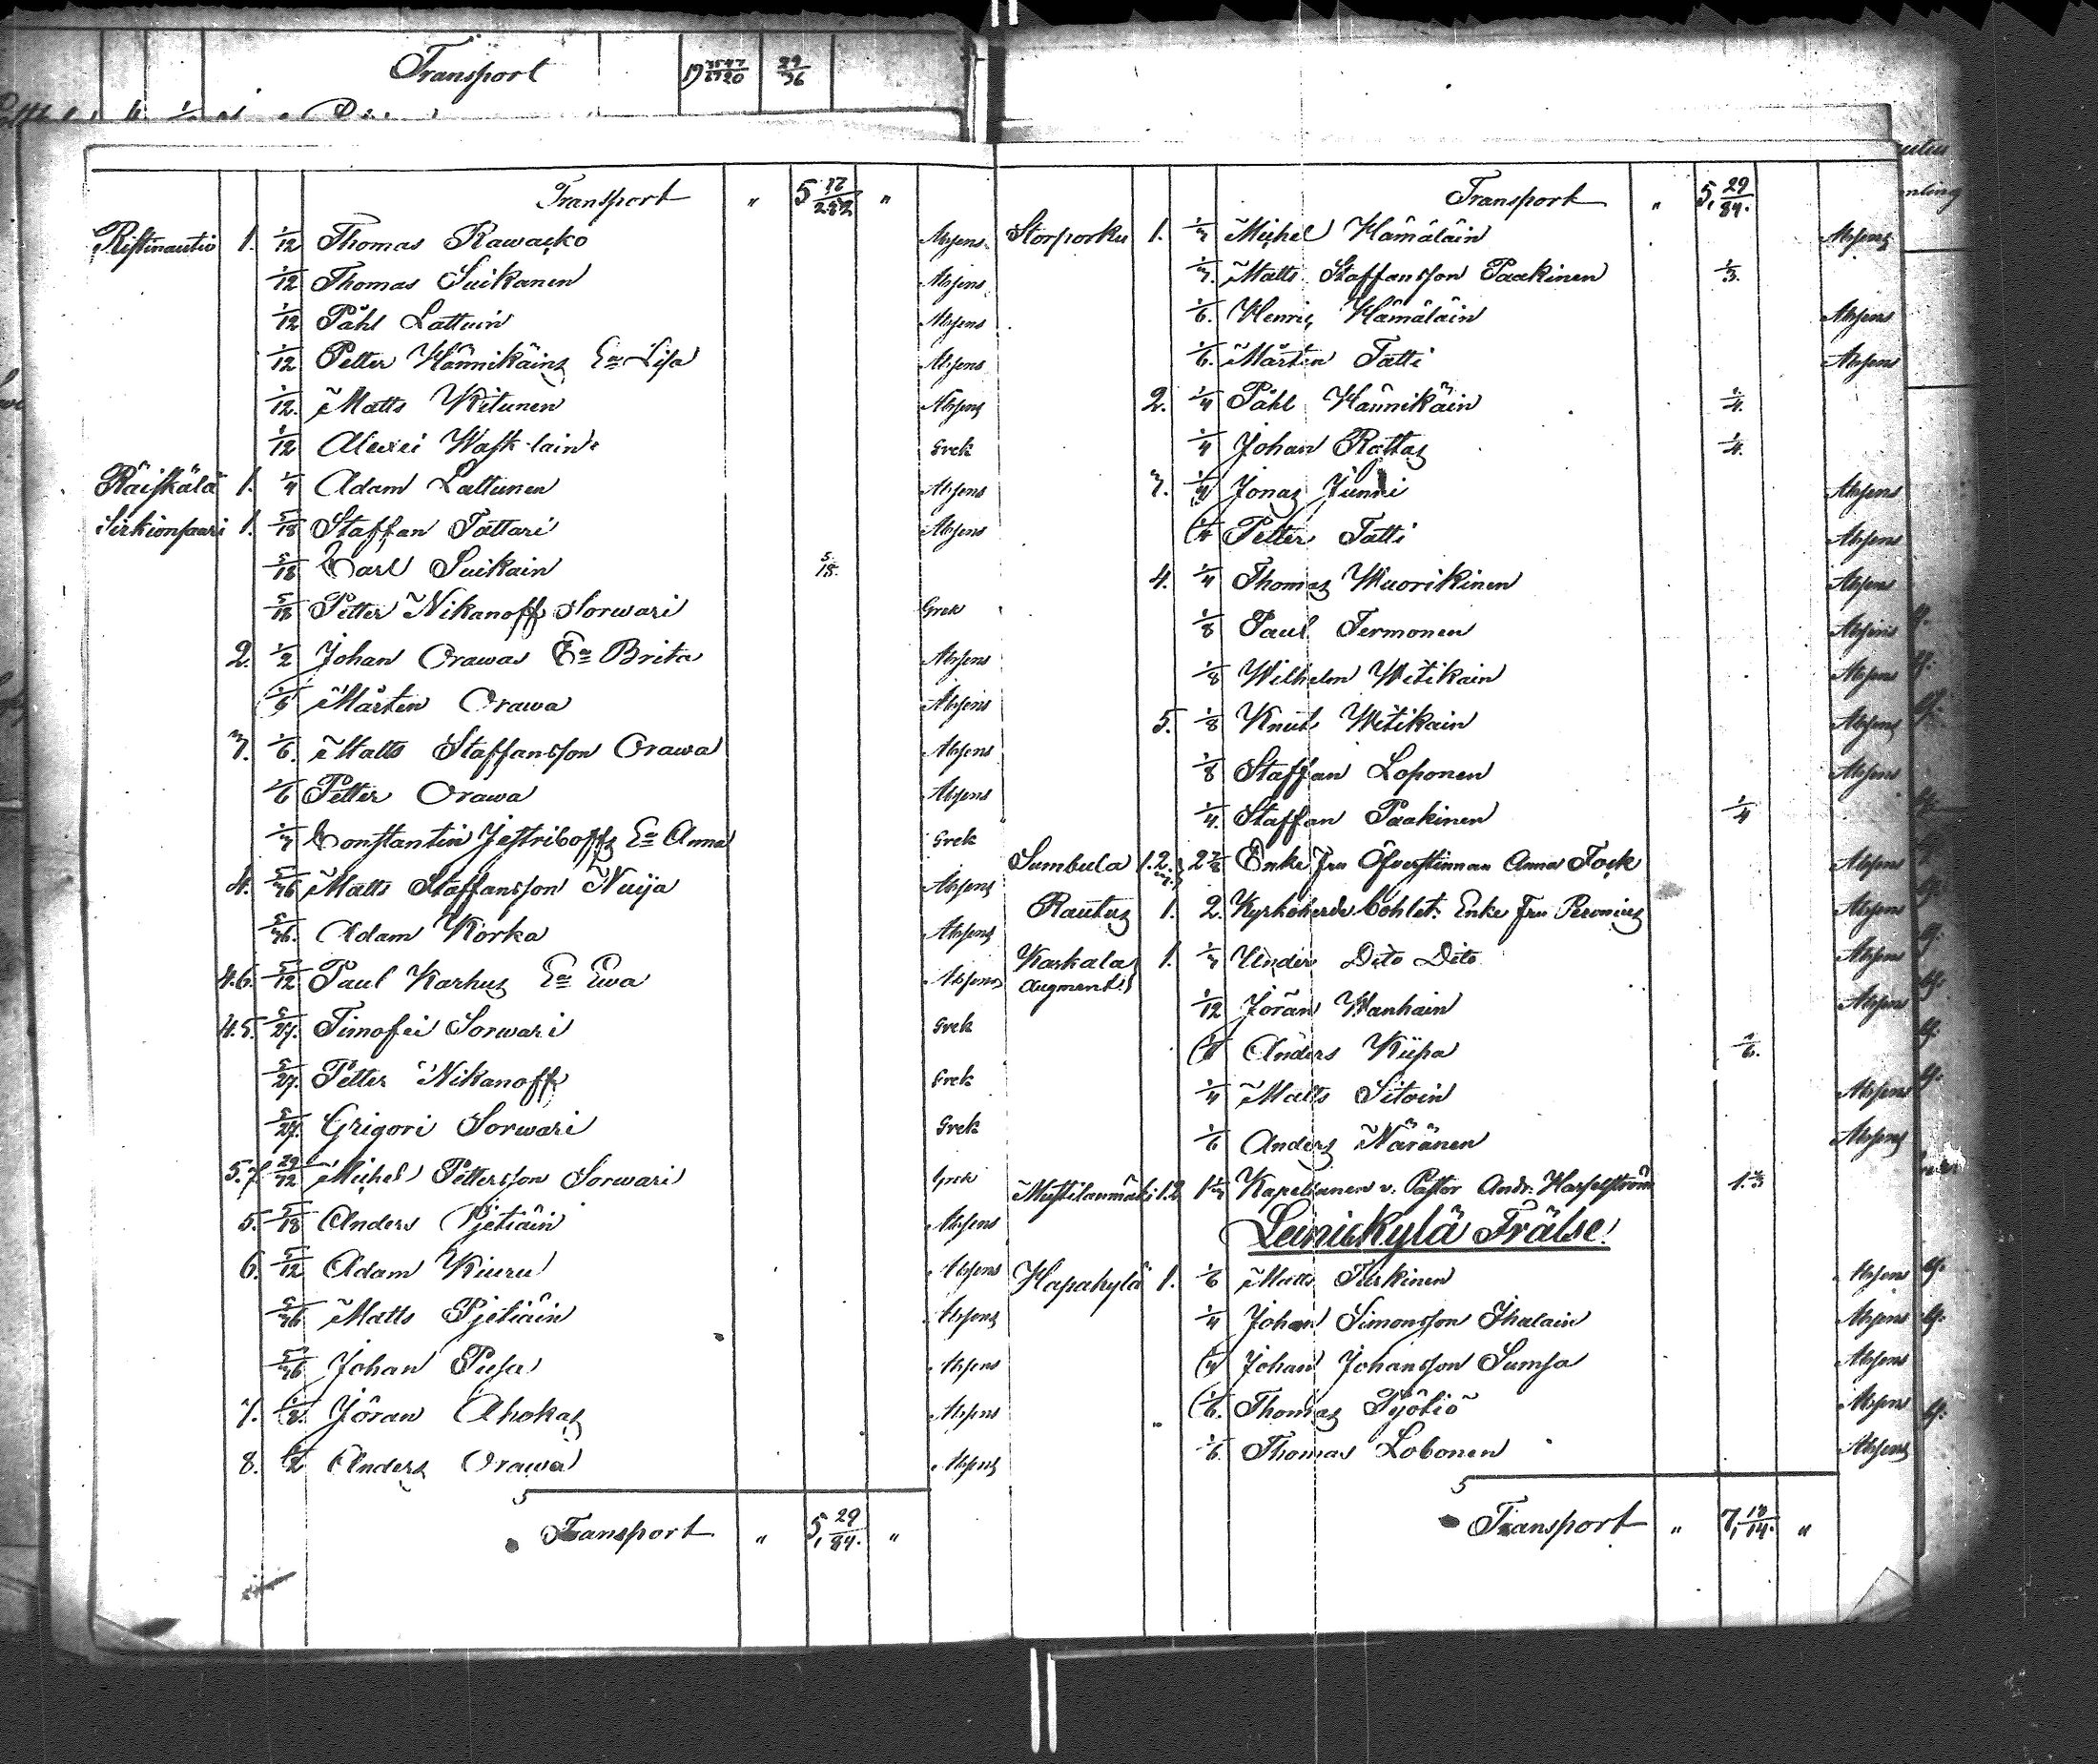 Transport 19 29/36
Transport " 5 17/252 "
Ristinautio 1. 1/12 Thomas Rawacko Ahsens
1/12 Thomas Suikanen Ahsens
1/12 Påhl Lattuin Ahsens
1/12 Petter Hännikäins Ea Lisa Ahsens
1/12. Matts Kitunen Ahsens
1/12 Alexei Grek
Räiskälä 1. 1/4 Adam Lattunen Ahsens
Sirkionsaari 1. 5/18 Staffan Tattari Ahsens
5/18 Carl Suikain 5/18.
5/18 Petter Nikanoff Sorwari Grek
2. 1/2 Johan Orawas Ea Brita Ahsens
1/6 Mårten Orawa Ahsens
3. 1/6. Matts Staffansson Orawa Ahsens
1/6 Petter Orawa Ahsens
1/3 Constantin Jestriboffs Ea Anna Grek
4. 5/36 Matts Staffansson Nuija Ahsens
5/36. Adam Korka Ahsens
4.6. 5/12 Paul Karhus Ea Ewa Ahsens
4.5. 5/27. Timofei Sorwari Grek
5/27. Petter Nikanoff Grek
5/27. Grigori Sorwari Grek
5.7 29/72 Michel Pettersson Sorwari Grek
5. 5/18 Anders Pjetiäin Ahsens
6. 5/12 Adam Kiuru Ahsens
5/36 Matts Pjetiäin Ahsens
5/36 Johan Pusa Ahsens
7. 1/2. Jöran Ahokas Ahsens
8. 1/2 Anders Orawa Ahsens
Transport " 5, 29/84. "
Transport " 5, 29/84.
Storporku 1. 1/3 Michel Hämäläin Ahsens
1/3. Matts Staffansson Paakinen 1/3.
1/6. Henric Hämäläin Ahsens
1/6. Mårten Tatti Ahsens
2. 1/4 Påhl Hännikäin 1/4.
1/4 Johan Rattas 1/4.
3. 1/4 Jonas Junni Ahsens
1/4 Petter Tatti Ahsens
4. 1/4 Thomas Wuorikinen Ahsens
1/8 Paul Termonen Ahsens
1/8 Wilhelm Witikain Ahsens
5. 1/8 Knut Witikain Ahsens
1/8 Staffan Loponen Ahsens
1/4. Staffan Paakinen 1/4
Sumbula 1.2. Enke Fru Öfverstinnan Anna Fock Ahsens
Rautus 1. 2. Kyrkoherde Bohlet: Enke Fru Peronius Ahsens
Kaskala 1. 1/3 Under Dito Dito Ahsens
Augment.
1/12 Jöran Wanhain Ahsens
1/6 Anders Kiipa 1/6.
1/4 Matts Sitoin Ahsens
1/6 Anders Näränen Ahsens
Mustilanmäki 1.2 1 1/3 Kapelianen v. Pastor Andr. Hasselström 1. 1/3
Leinickylä Frälse.
Hapakylä 1. 1/6 Matts Turkinen Ahsens
1/4 Johan Simonsson Ihalain Ahsens
1/4 Johan Johansson Sumsa Ahsens
1/6. Thomas Pyöliö Ahsens
1/6. Thomas Lobonen Ahsens
Transport " 7, 13/14. "